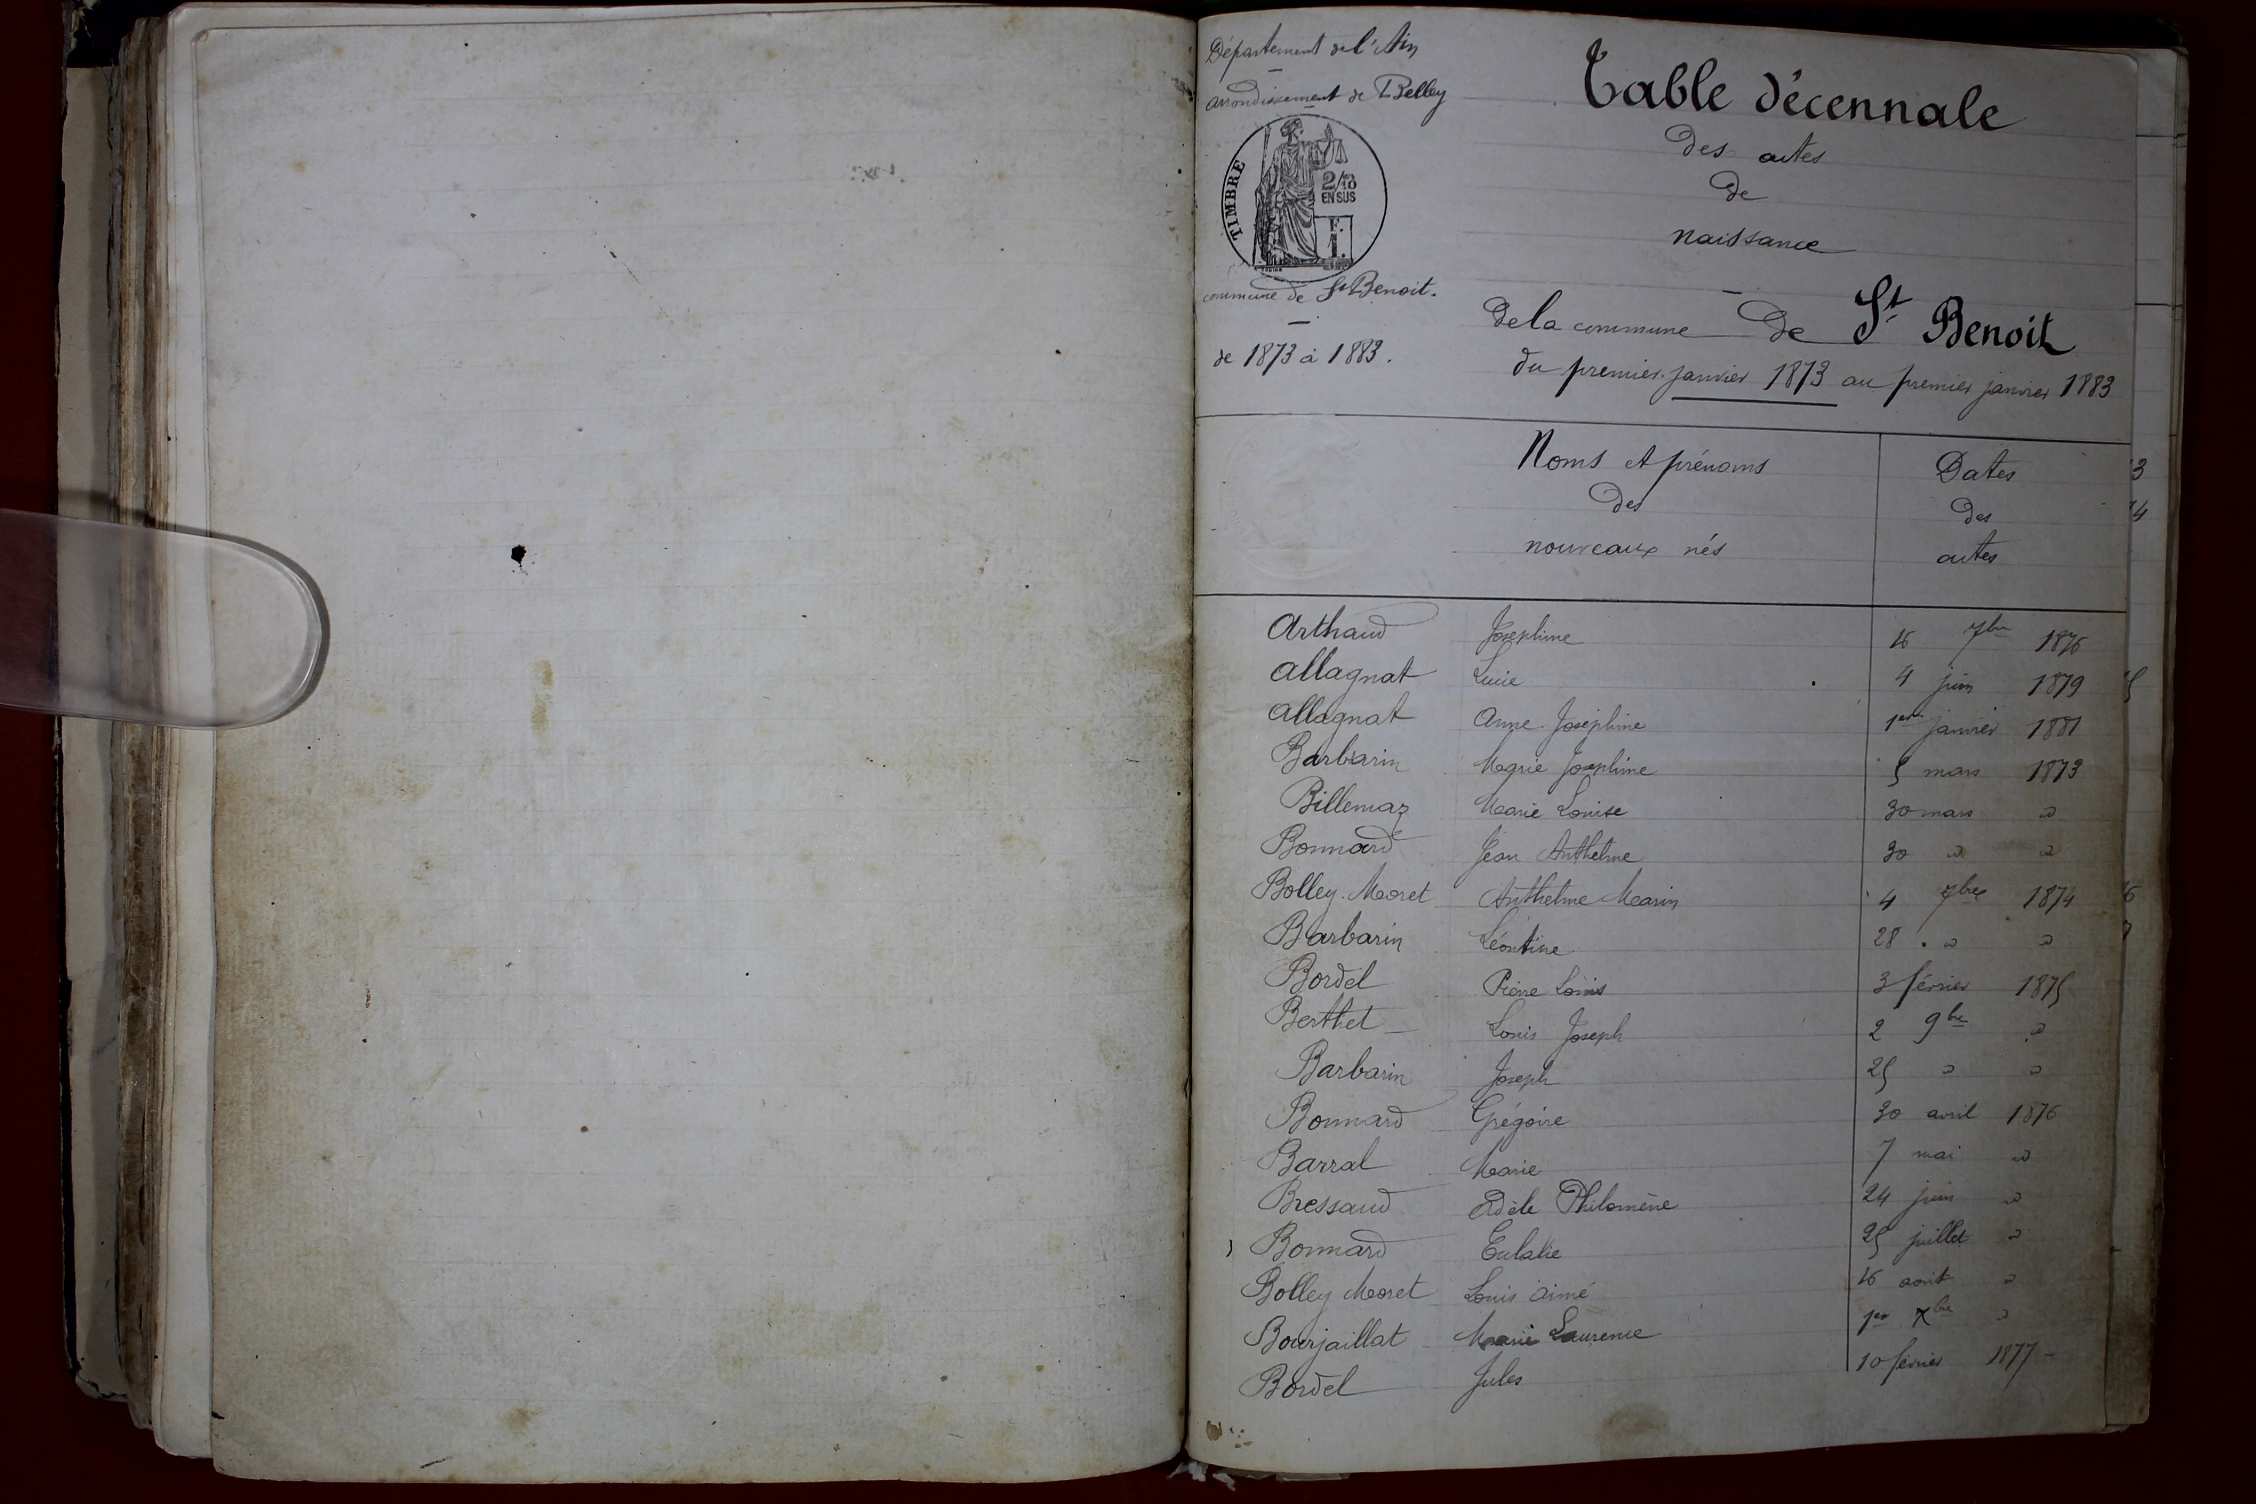 Département de l'Ain
arrondissement de Belley
TIMBRE
2/10
EN SUS
F.
1.
commune de St Benoit.
de 1873 à 1883.
Table décennale
des actes
de
naissance
de la commune de St Benoit
du premier janvier 1873 au premier janvier 1883
Noms et prénoms
des
nouveaux nés
Dates
des
actes
Arthaud Josephine 16 7bre 1876
Allagnat Lucie 4 juin 1879
Allagnat Anne Joséphine 1er janvier 1881
Barbarin Marie Joséphine 5 mars 1873
Billemaz Marie Louise 30 mars "
Bonnard Jean Anthelme 30 " "
Bolley-Moret Anthelme Marin 4 7bre 1874
Barbarin Léontine 28 " "
Bordel Pierre Louis 3 février 1875
Berthet Louis Joseph 2 9bre "
Barbarin Joseph 25 " "
Bonnard Grégoire 30 avril 1876
Barral Marie 7 mai "
Bressaud Adèle Philomène 24 juin "
Bonnard Eulalie 25 juillet "
Bolley Moret Louis Aimé 16 août "
Bourjaillat Marie Laurence 1er Xbre "
Bordel Jules 10 février 1877